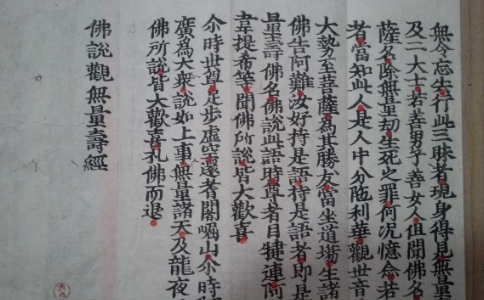 無令忘失行此三昧者現身得見無量
及二大士若善男子善女人但聞佛名
薩名除無量劫生死之罪何況憶念若
者當知此人是人中分陁利華觀世音
大勢至菩薩為其勝友當坐道場生諸
佛告阿難汝好持是語持是語者即是
量壽佛名佛說此語時尊者目犍連阿
韋提希等聞佛所說皆大歡喜
尒時世尊足步虛空還耆闍崛山尒時阿
廣為大眾說如上事無量諸天及龍夜
佛所說皆大歡喜礼佛而退
佛說觀無量壽經